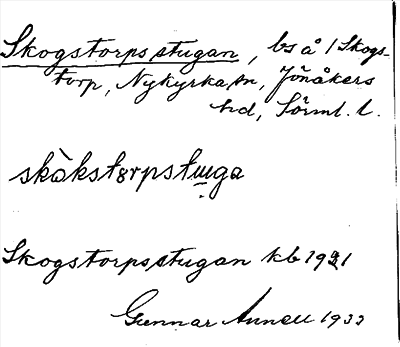 Skogstorpsstugan, bs å / Skogs-
torp, Nykyrka sn, Jönåkers
hd, Sörml. l.
skåkstɷrpstɯga
Skogstorpsstugan kb 1921
Gunnar Annell 1933